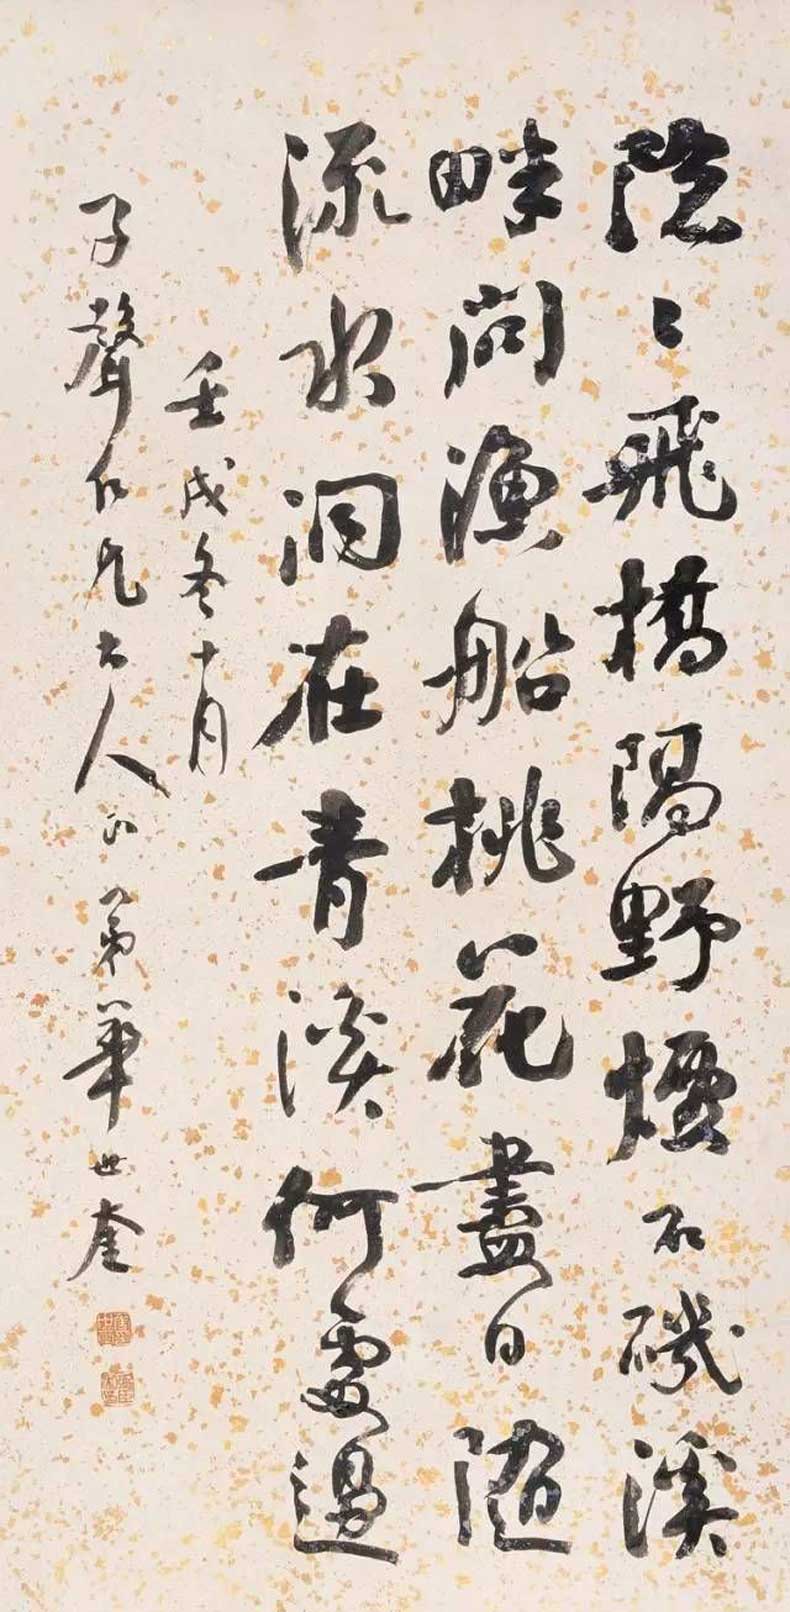 隱〻飛橋隔野煙石磯溪
畔問漁船桃花盡日隨
流水洞在青溪何處邊
壬戌冬十月
子聲仁兄大人正 弟華世奎